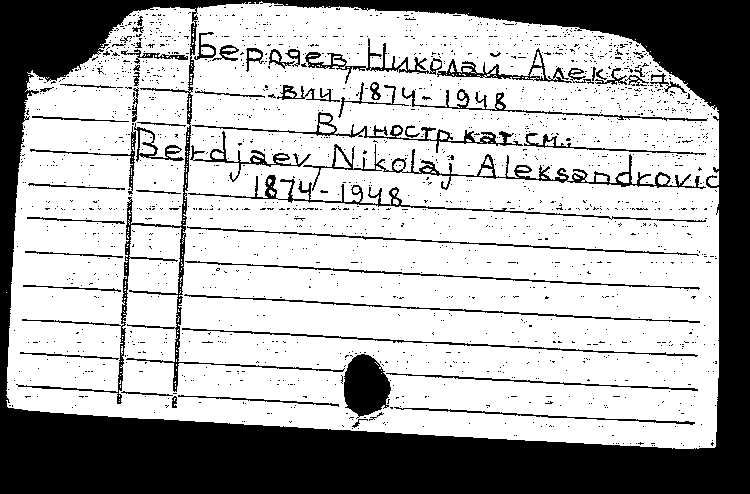 Бердяев, Николай Алексан
вич, 1874-1948
В иностр. кат. см.:
Berdjaev, Nikolaj Aleksandrovič
1874-1948